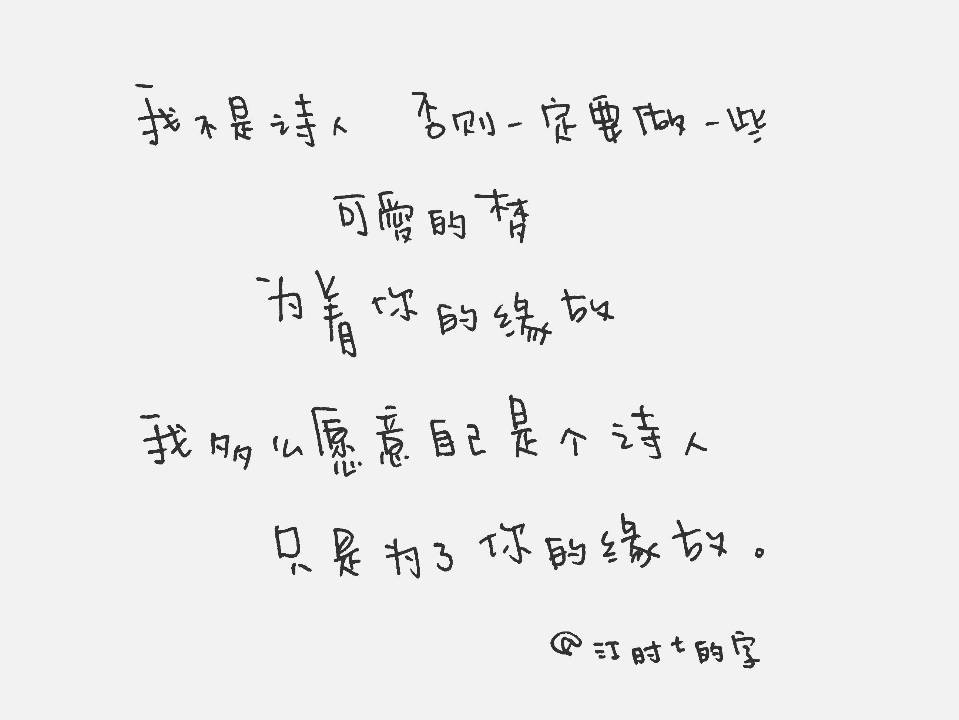 我不是诗人 否则一定要做一些
可愛的梦
为着你的缘故
我多么愿意自己是个诗人
只是为了你的缘故。
@江时七的字